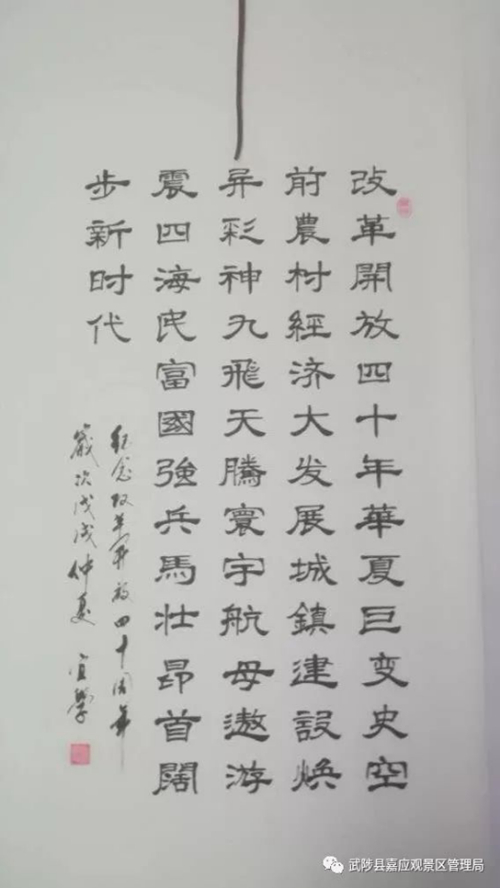 改革開放四十年華夏巨变史空
前農村經济大发展城鎮建設焕
异彩神九飛天騰寰宇航母遨游
震四海民富國強兵馬壮昂首闊
步新时代
紀念改革開放四十周年
歲次戊戌仲夏 宜學
武陟县嘉应观景区管理局